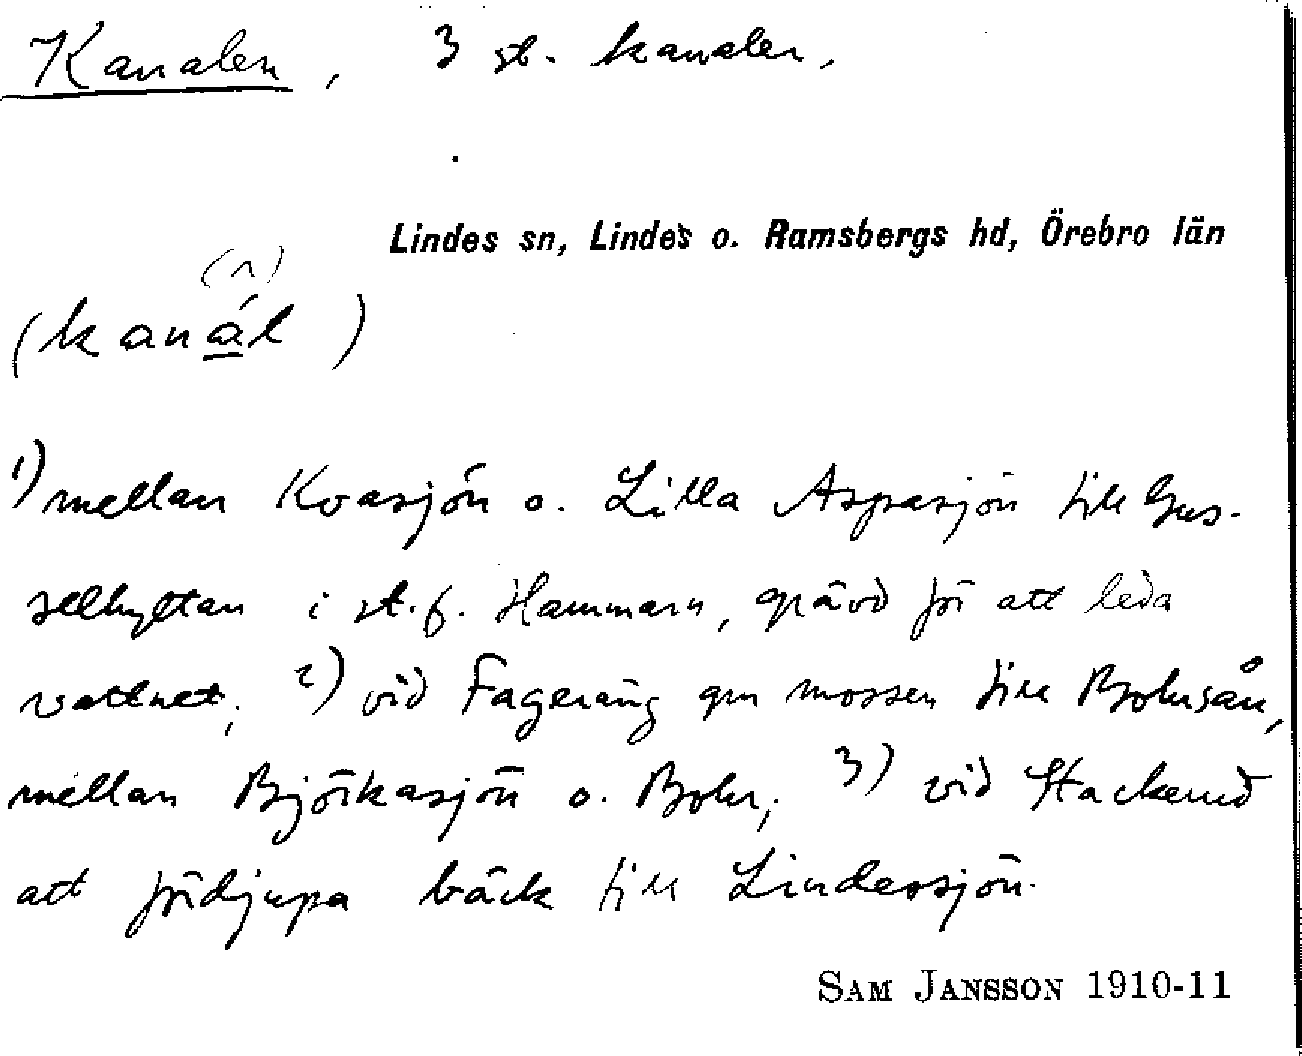 Kanalen, 3 st. kanaler,
Lindes sn, Lindes o. Ramsbergs hd, Örebro län
(^)
(kanál)
1) mellan Kvasjön o. Lilla Aspasjön till Gus-
selhyttan i st. f. Hammarn, grävd för att leda
vattnet; 2) vid Fageräng gm mossen till Bohrsån,
mellan Björkasjön o. Bohr; 3) vid Stackerud
att fördjupa bäck till Lindessjön.
SAM JANSSON 1910-11